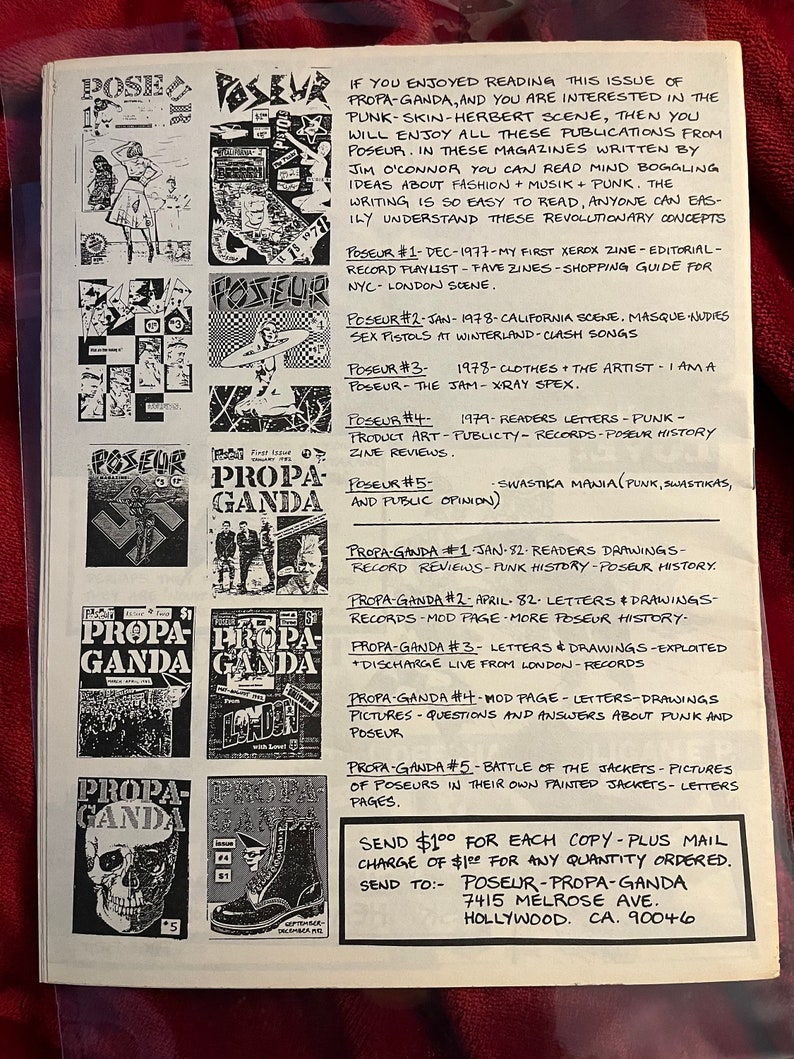 POSEUR
1
POSEUR
$1.00
PISTOLS
CALIFORNIA
1977
#3
POSEUR
4
POSEUR
MAGAZINE
#5
POSEUR
First Issue
JANUARY 1982
PROPA-
GANDA
POSEUR Issue # Two $1
PROPA-
GANDA
MARCH-APRIL 1982
POSEUR
PROPA-
GANDA
MAY-AUGUST 1982
From
LONDON
with Love!
PROPA-
GANDA
#5
PROPA-
GANDA
issue
#4
$1
SEPTEMBER-
DECEMBER 1982
IF YOU ENJOYED READING THIS ISSUE OF
PROPA-GANDA, AND YOU ARE INTERESTED IN THE
PUNK-SKIN-HERBERT SCENE, THEN YOU
WILL ENJOY ALL THESE PUBLICATIONS FROM
POSEUR. IN THESE MAGAZINES WRITTEN BY
JIM O'CONNOR YOU CAN READ MIND BOGGLING
IDEAS ABOUT FASHION + MUSIK + PUNK. THE
WRITING IS SO EASY TO READ, ANYONE CAN EAS-
ILY UNDERSTAND THESE REVOLUTIONARY CONCEPTS
POSEUR #1- DEC-1977-MY FIRST XEROX ZINE - EDITORIAL -
RECORD PLAYLIST - FAVE ZINES - SHOPPING GUIDE FOR
NYC - LONDON SCENE.
POSEUR #2- JAN- 1978-CALIFORNIA SCENE. MASQUE-NUDIES
SEX PISTOLS AT WINTERLAND-CLASH SONGS
POSEUR #3- 1978-CLOTHES + THE ARTIST - I AM A
POSEUR - THE JAM - X-RAY SPEX.
POSEUR #4- 1979- READERS LETTERS - PUNK -
PRODUCT ART - PUBLICTY - RECORDS - POSEUR HISTORY
ZINE REVIEWS.
POSEUR #5- -SWASTIKA MANIA (PUNK, SWASTIKAS,
AND PUBLIC OPINION)
PROPA-GANDA #1 JAN. 82. READERS DRAWINGS -
RECORD REVIEWS - PUNK HISTORY - POSEUR HISTORY.
PROPA-GANDA #2- APRIL. 82. LETTERS & DRAWINGS -
RECORDS - MOD PAGE - MORE POSEUR HISTORY-
PROPA-GANDA #3- LETTERS & DRAWINGS - EXPLOITED
+ DISCHARGE LIVE FROM LONDON - RECORDS
PROPA-GANDA #4- MOD PAGE - LETTERS - DRAWINGS
PICTURES - QUESTIONS AND ANSWERS ABOUT PUNK AND
POSEUR
PROPA-GANDA #5 - BATTLE OF THE JACKETS - PICTURES
OF POSEURS IN THEIR OWN PAINTED JACKETS - LETTERS
PAGES.
SEND $1.00 FOR EACH COPY - PLUS MAIL
CHARGE OF $1.00 FOR ANY QUANTITY ORDERED.
SEND TO:- POSEUR-PROPA-GANDA
7415 MELROSE AVE.
HOLLYWOOD. CA. 90046